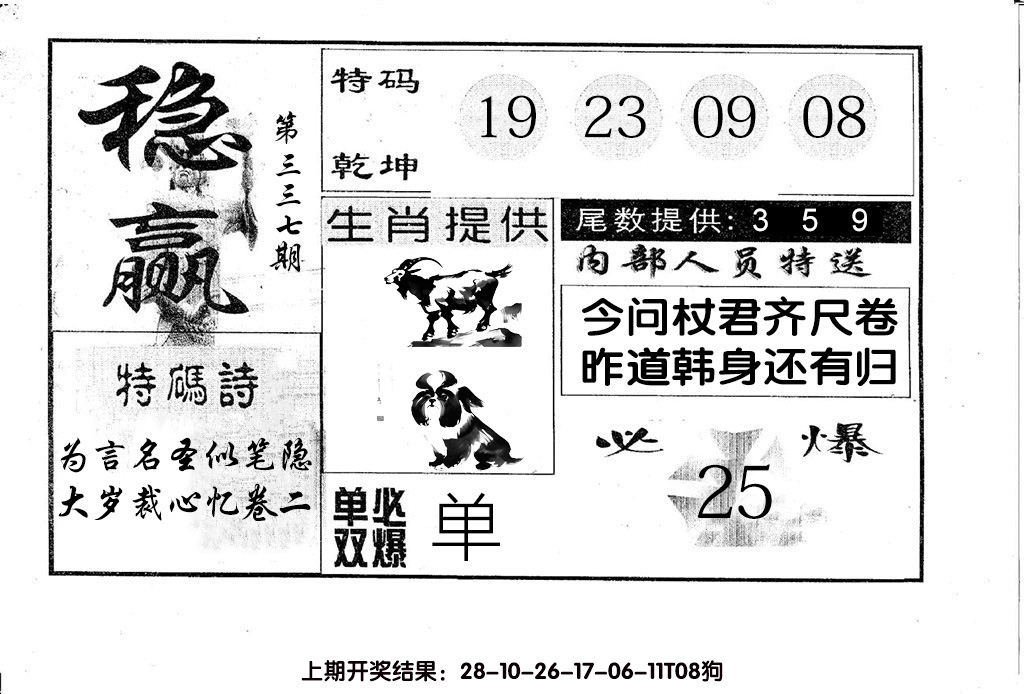 稳赢
第三三七期
特码诗
为言名圣似笔隐
大岁裁心忆卷二
特码
乾坤
19 23 09 08
生肖提供
单双
必爆
单
尾数提供: 3 5 9
内部人员特送
今问杖君齐尺卷
昨道韩身还有归
必爆
25
上期开奖结果：28-10-26-17-06-11T08狗